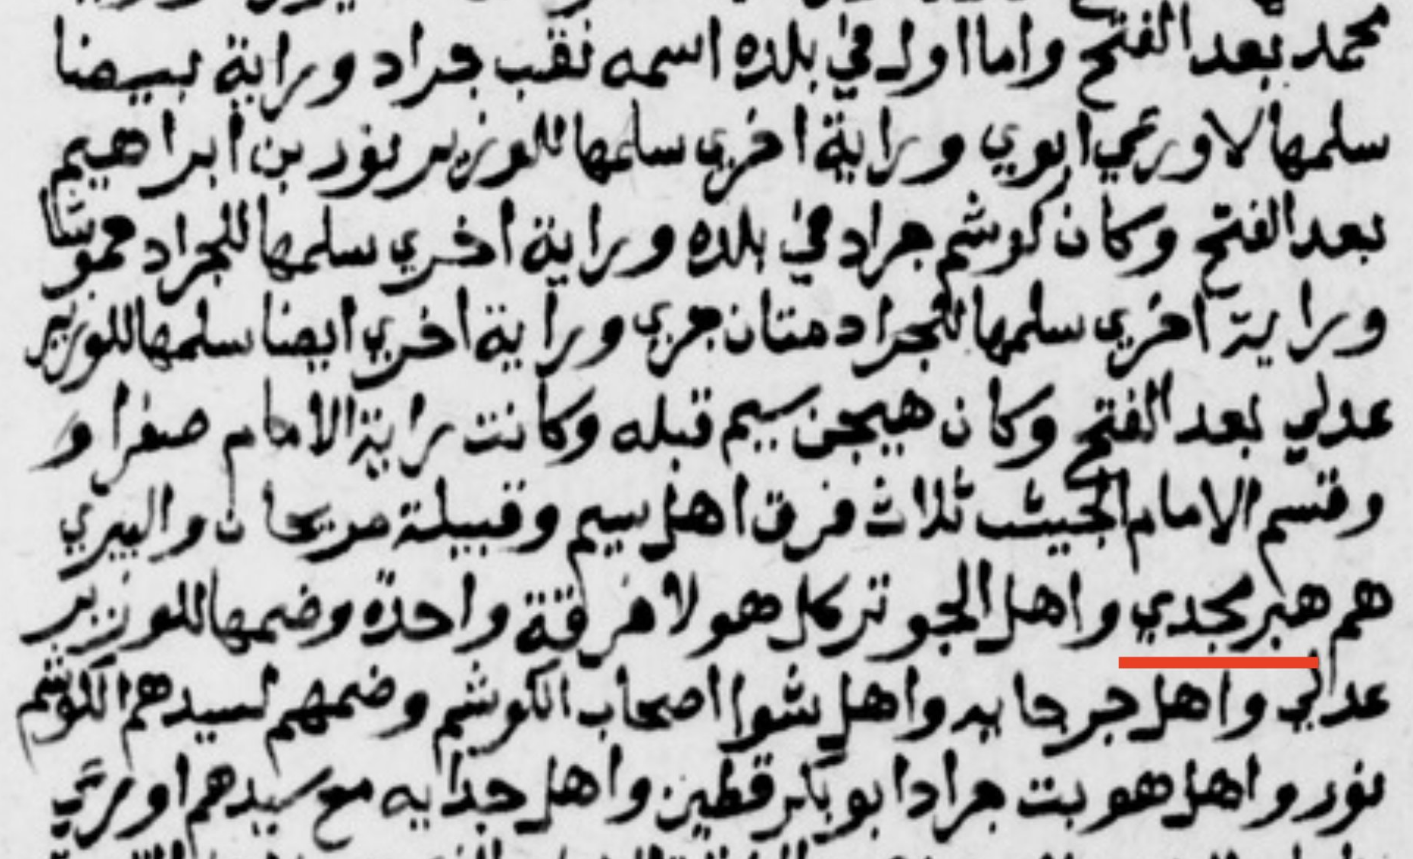 محمد بعد الفتح واما اول في بلده اسمه نقب جراد وراية بيضا
سلمها لاورعي ابوي وراية اخرى سلمها للوزير نور بن ابراهيم
بعد الفتح وكان كوشم جراد في بلده وراية اخرى سلمها للجراد حموشا
وراية اخرى سلمها للجراد متان جري وراية اخرى ايضا سلمها للوزير
عدلي بعد الفتح وكان هيجن سيم قبله وكانت راية الامام صفرا و
وقسم الامام الجيش ثلاث فرق اهل سيم وقبيلة مريحان واليبري
هم هبر مجدي واهل الجو تر كل هولا فرقة واحدة وضمها للوزير
عدلي واهل جر جايه واهل شوا اصحاب الكوشم وضمهم لسيدهم الكوشم
نور واهل هوبت جراد ابو بكر قطين واهل جدايه مع سيدهم اورعي